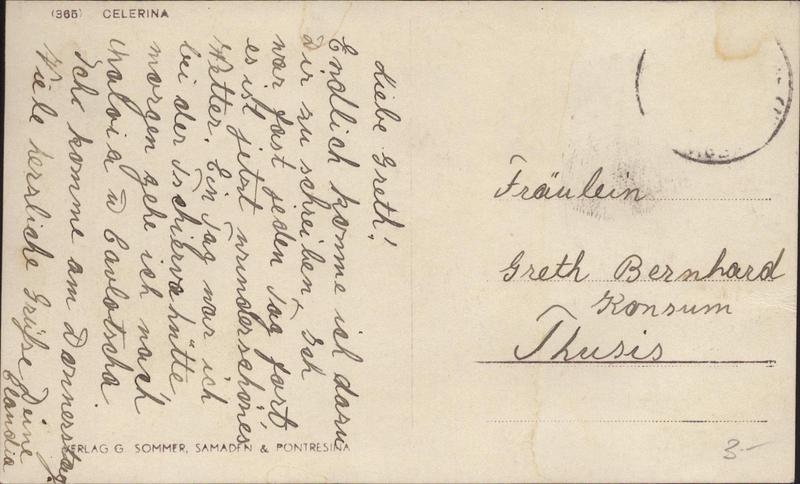 (365) CELERINA
Liebe Greth!
Endlich komme ich dazu
Dir zu schreiben. Ich
war fast jeden Tag fort
es ist jetzt wunderschönes
Wetter. Ein Tag war ich
bei der Tschiervahütte,
morgen gehe ich nach
Maloia u Cavlotscha
Ich komme am Donnerstag.
Viele herzliche Grüsse Deine
Claudia
VERLAG G. SOMMER, SAMADEN & PONTRESINA
Fräulein
Greth Bernhard
Konsum
Thusis
3-